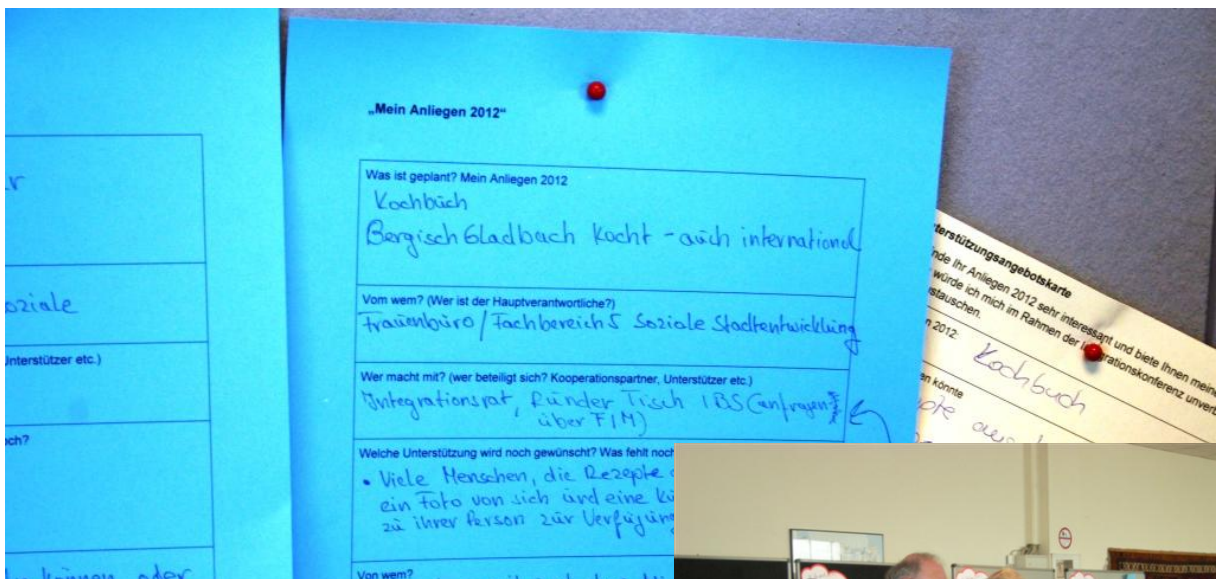 r
oziale
Unterstützer etc.)
och?
können oder
„Mein Anliegen 2012“
Was ist geplant? Mein Anliegen 2012
Kochbuch
Bergisch Gladbach kocht - auch international
Vom wem? (Wer ist der Hauptverantwortliche?)
Frauenbüro / Fachbereich 5 Soziale Stadtentwicklung
Wer macht mit? (wer beteiligt sich? Kooperationspartner, Unterstützer etc.)
Integrationsrat, Runder Tisch IBS (anfragen
über FIM)
Welche Unterstützung wird noch gewünscht? Was fehlt noch
• Viele Menschen, die Rezepte
ein Foto von sich und eine
zu ihrer Person zur Verfügung
Von wem?
terstützungsangebotskarte
nde Ihr Anliegen 2012 sehr interessant und biete Ihnen meine
würde ich mich im Rahmen der Integrationskonferenz unverb
stauschen.
n 2012: Kochbuch
en könnte